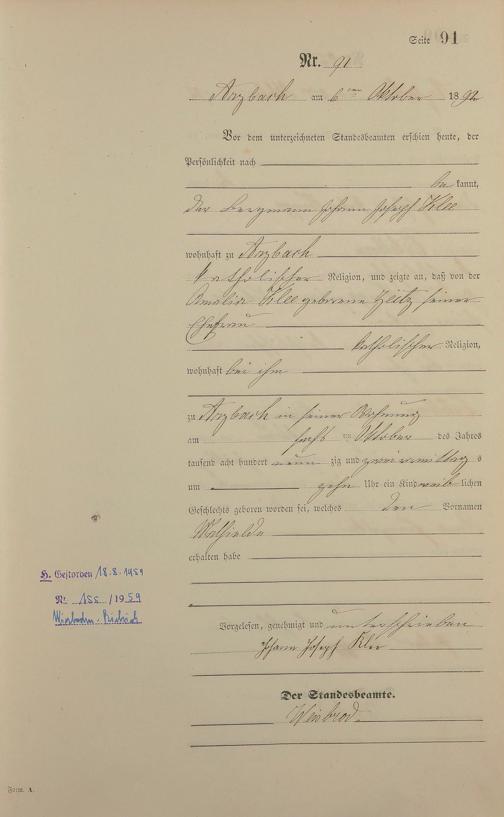 Seite 91
Nr. 91
Arzbach am 6ten Oktober 1892
Vor dem unterzeichneten Standesbeamten erschien heute, der
Persönlichkeit nach
be kannt,
der Bergmann Johann Joseph Klee
wohnhaft zu Arzbach
katholischer Religion, und zeigte an, daß von der
Amalia Klee geborene Zeitz seiner
Ehefrau
katholischer Religion,
wohnhaft bei ihm
zu Arzbach in seiner Wohnung
am sechs ten Oktober des Jahres
tausend acht hundert neun zig und zwei vormittag s
um zehn Uhr ein Kind weib lichen
Geschlechts geboren worden sei, welches den Vornamen
erhalten habe
Vorgelesen, genehmigt und unterschrieben
Johann Joseph Klee
Der Standesbeamte.
Weisbrod.
H. Gestorben 18.8.1959
Nr. 155 /1959
Wiesbaden-Biebrich
Form. A.